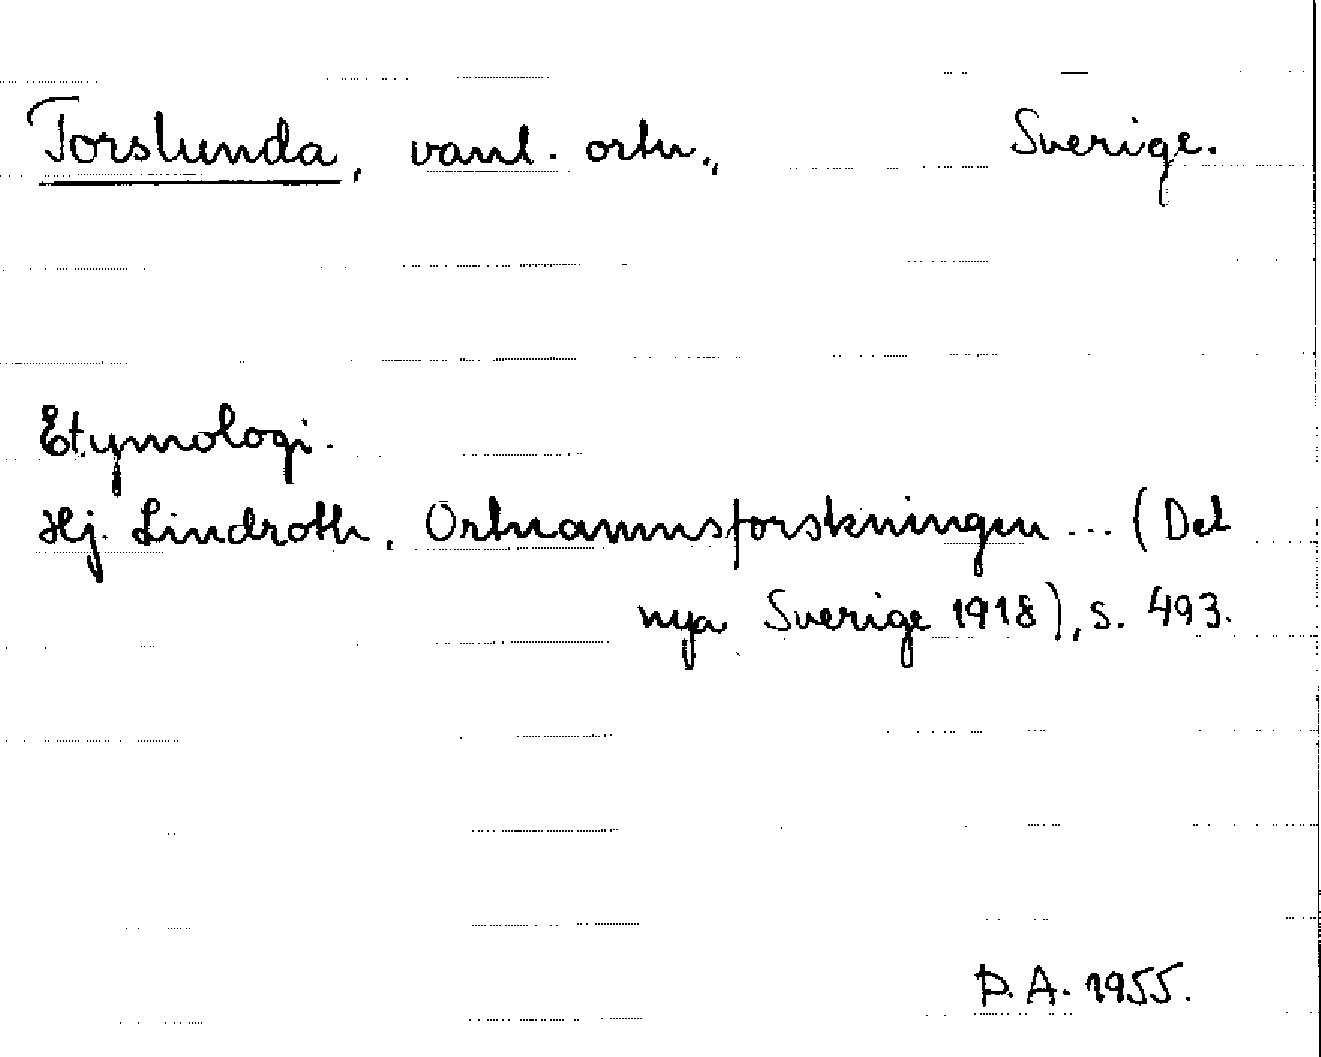 Torslunda, vanl. ortn., Sverige.
Etymologi.
Hj. Lindroth, Ortnamnsforskningen ... (Det
nya Sverige 1918), s. 493.
D.A. 1955.